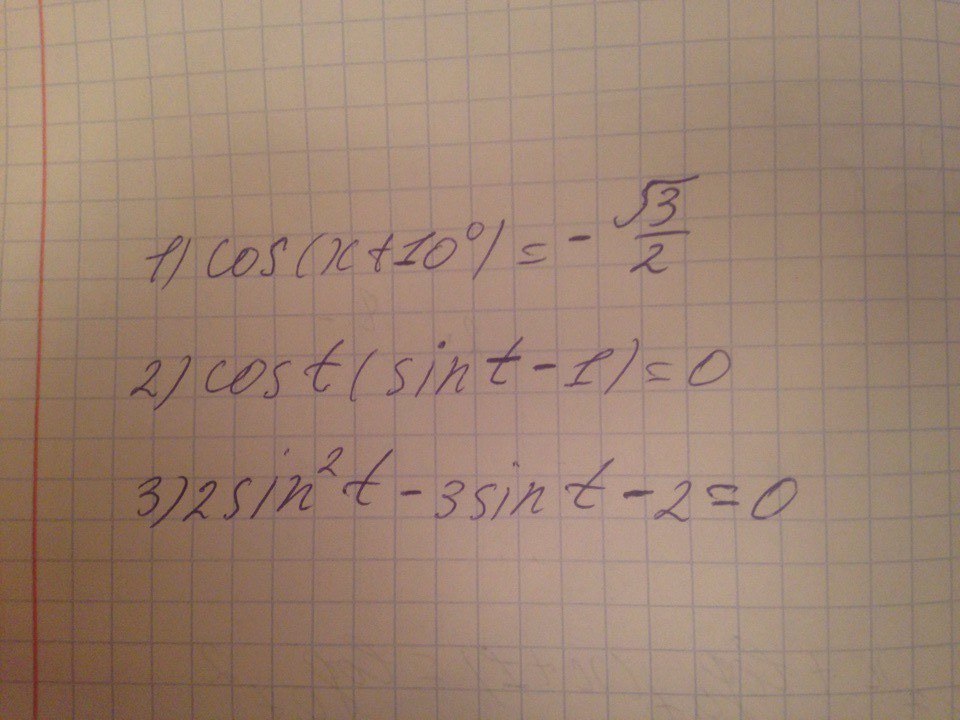 1) cos(x+10°) = - √3/2
2) cos t (sin t - 1) = 0
3) 2 sin² t - 3 sin t - 2 = 0